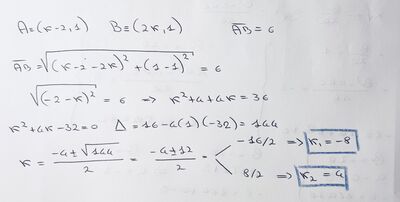 A≡(k-2,1) B≡(2k,1) AB=6
AB=√((k-2-2k)²+(1-1)²)=6
√((-2-k)²)=6 => k²+4+4k=36
k²+4k-32=0 Δ=16-4(1)(-32)=144
k=(-4±√144)/2=(-4±12)/2= -16/2 => k₁=-8
8/2 => k₂=4